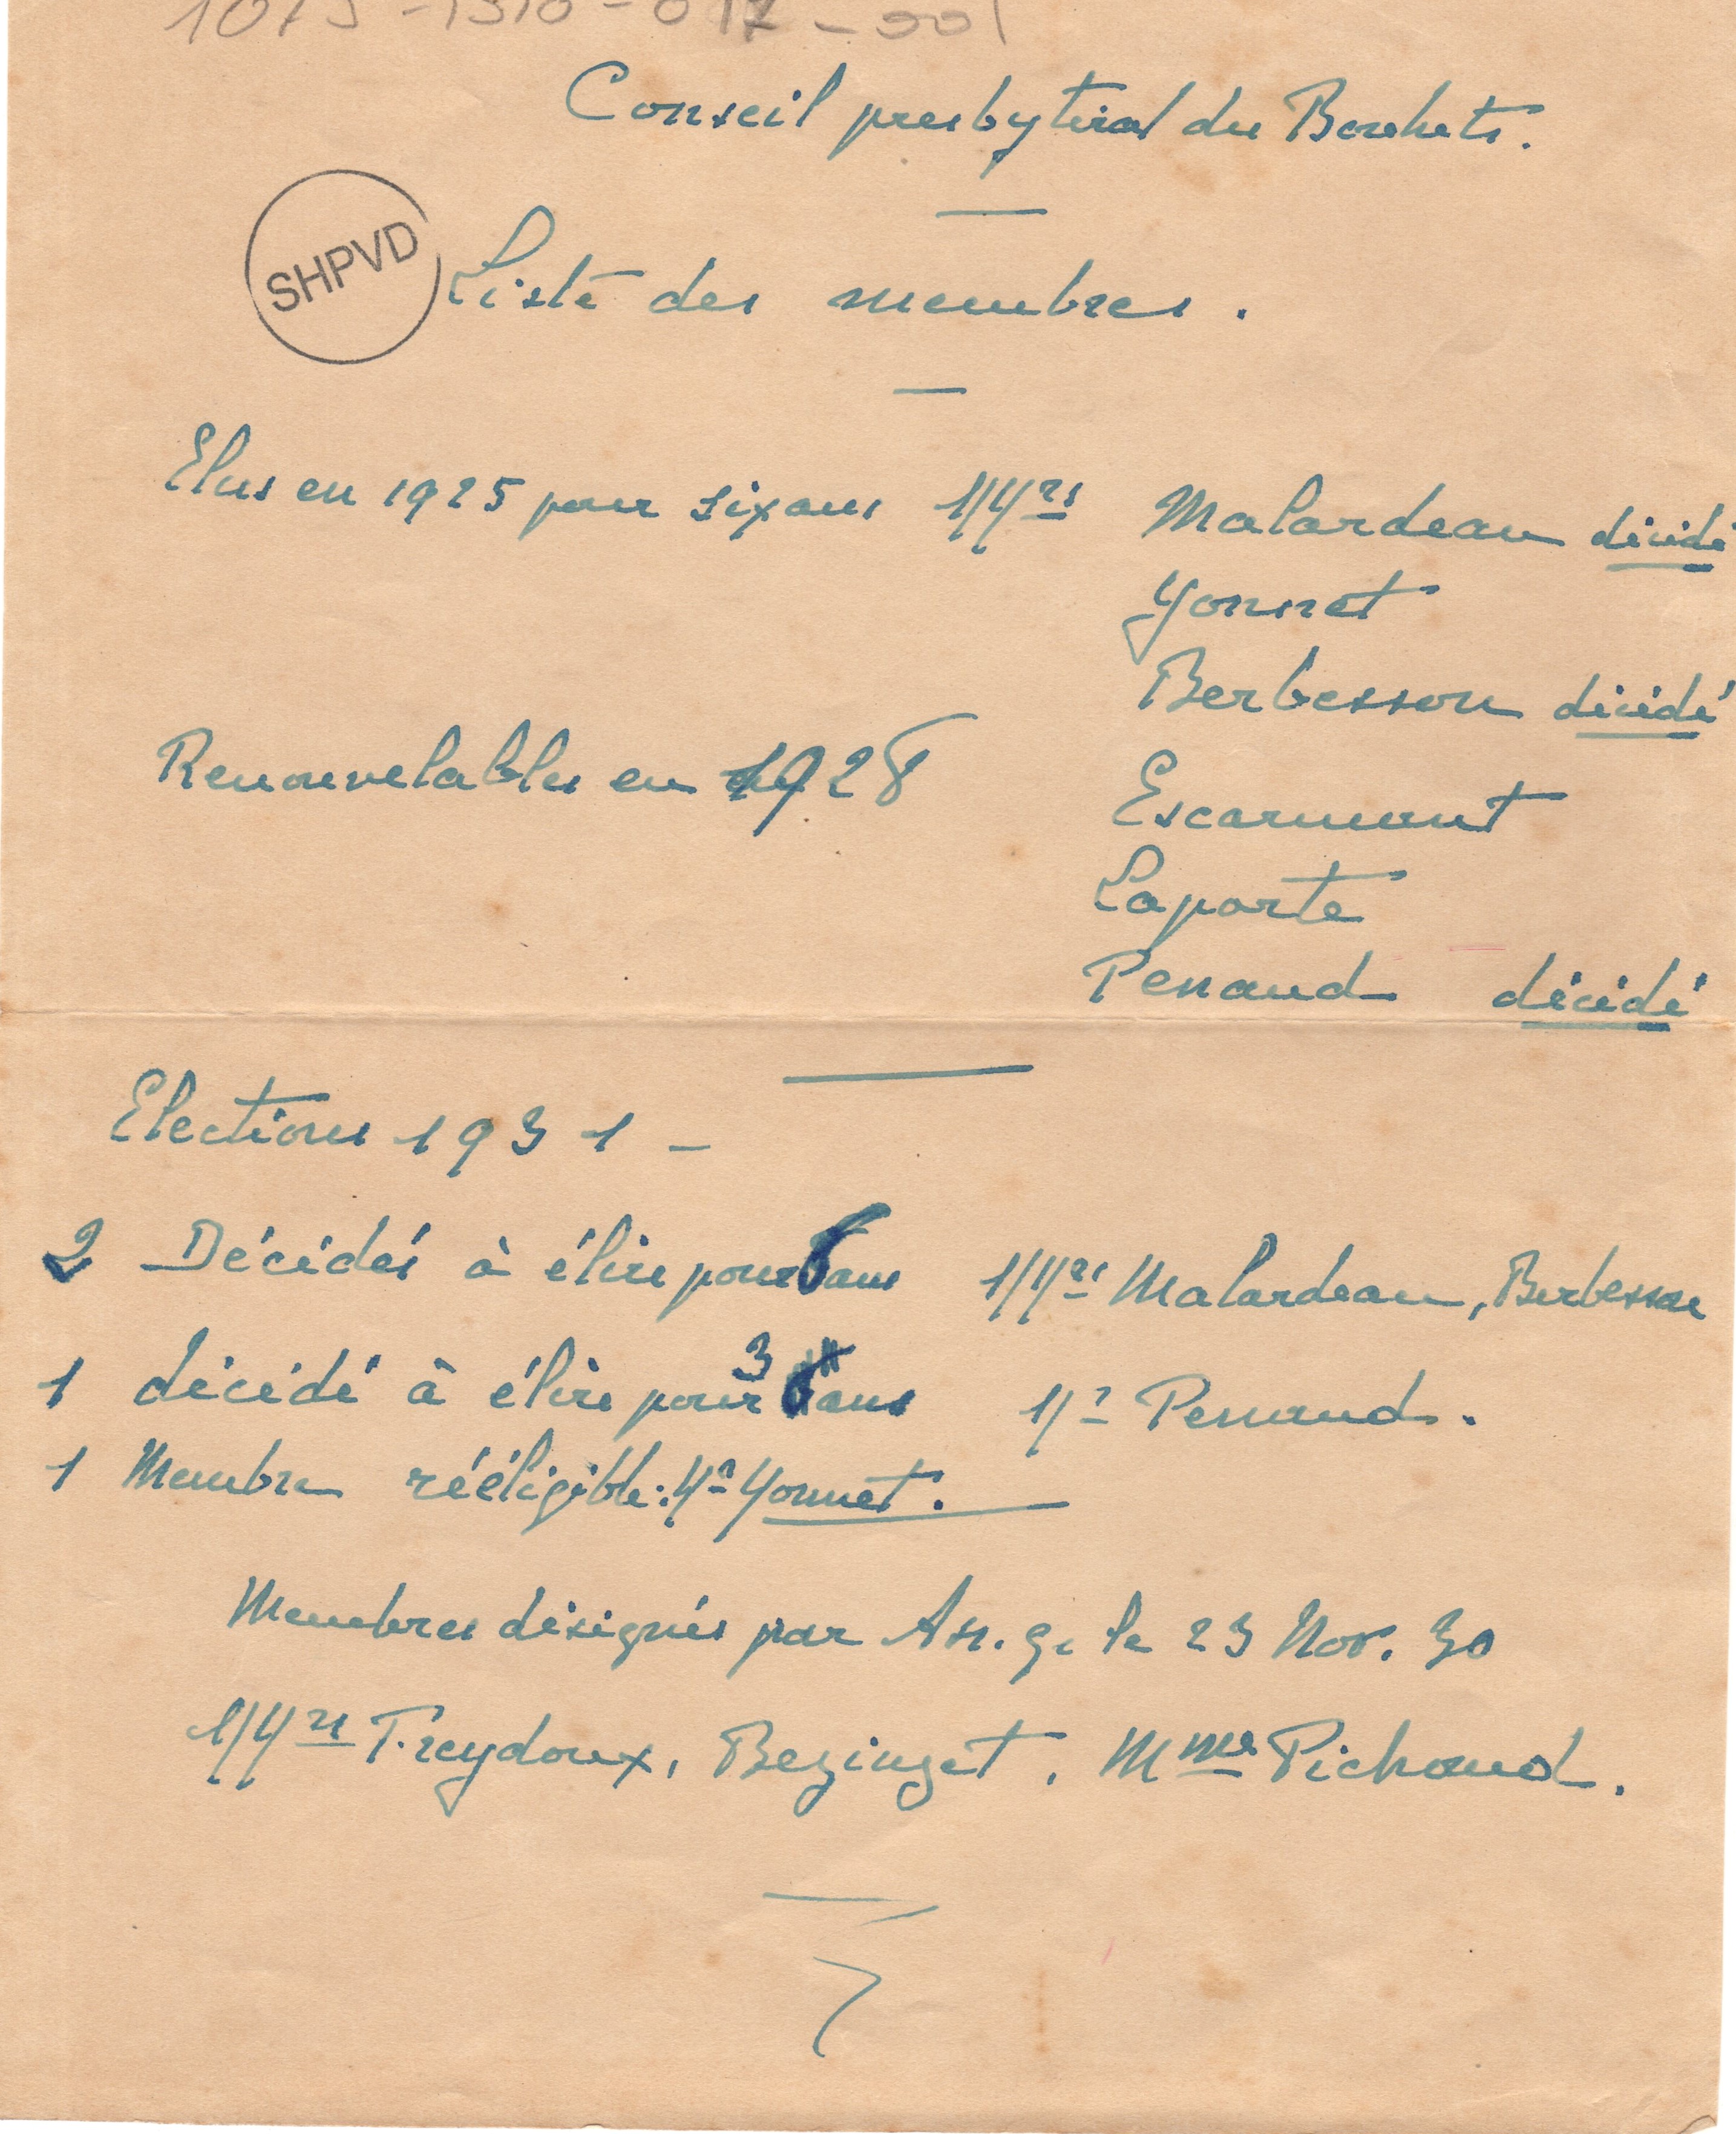 Conseil presbytéral des Bouhets.
SHPVD
Liste des membres.
Elus en 1925 pour six ans MMrs Malardeau décédé
Yonnet
Berbesson décédé
Renouvelables en 1928 Escarmant
Laporte
Penaud décédé
Elections 1931 -
2 Décédés à élire pour 6 ans MMrs Malardeau, Berbesson
1 décédé à élire pour 3 ans Mr Penaud.
1 Membre rééligible: Mr Yonnet.
Membres désignés par Ass. gé le 23 Nov. 30
MMrs Freydoux, Bezinget, Mme Pichaud.